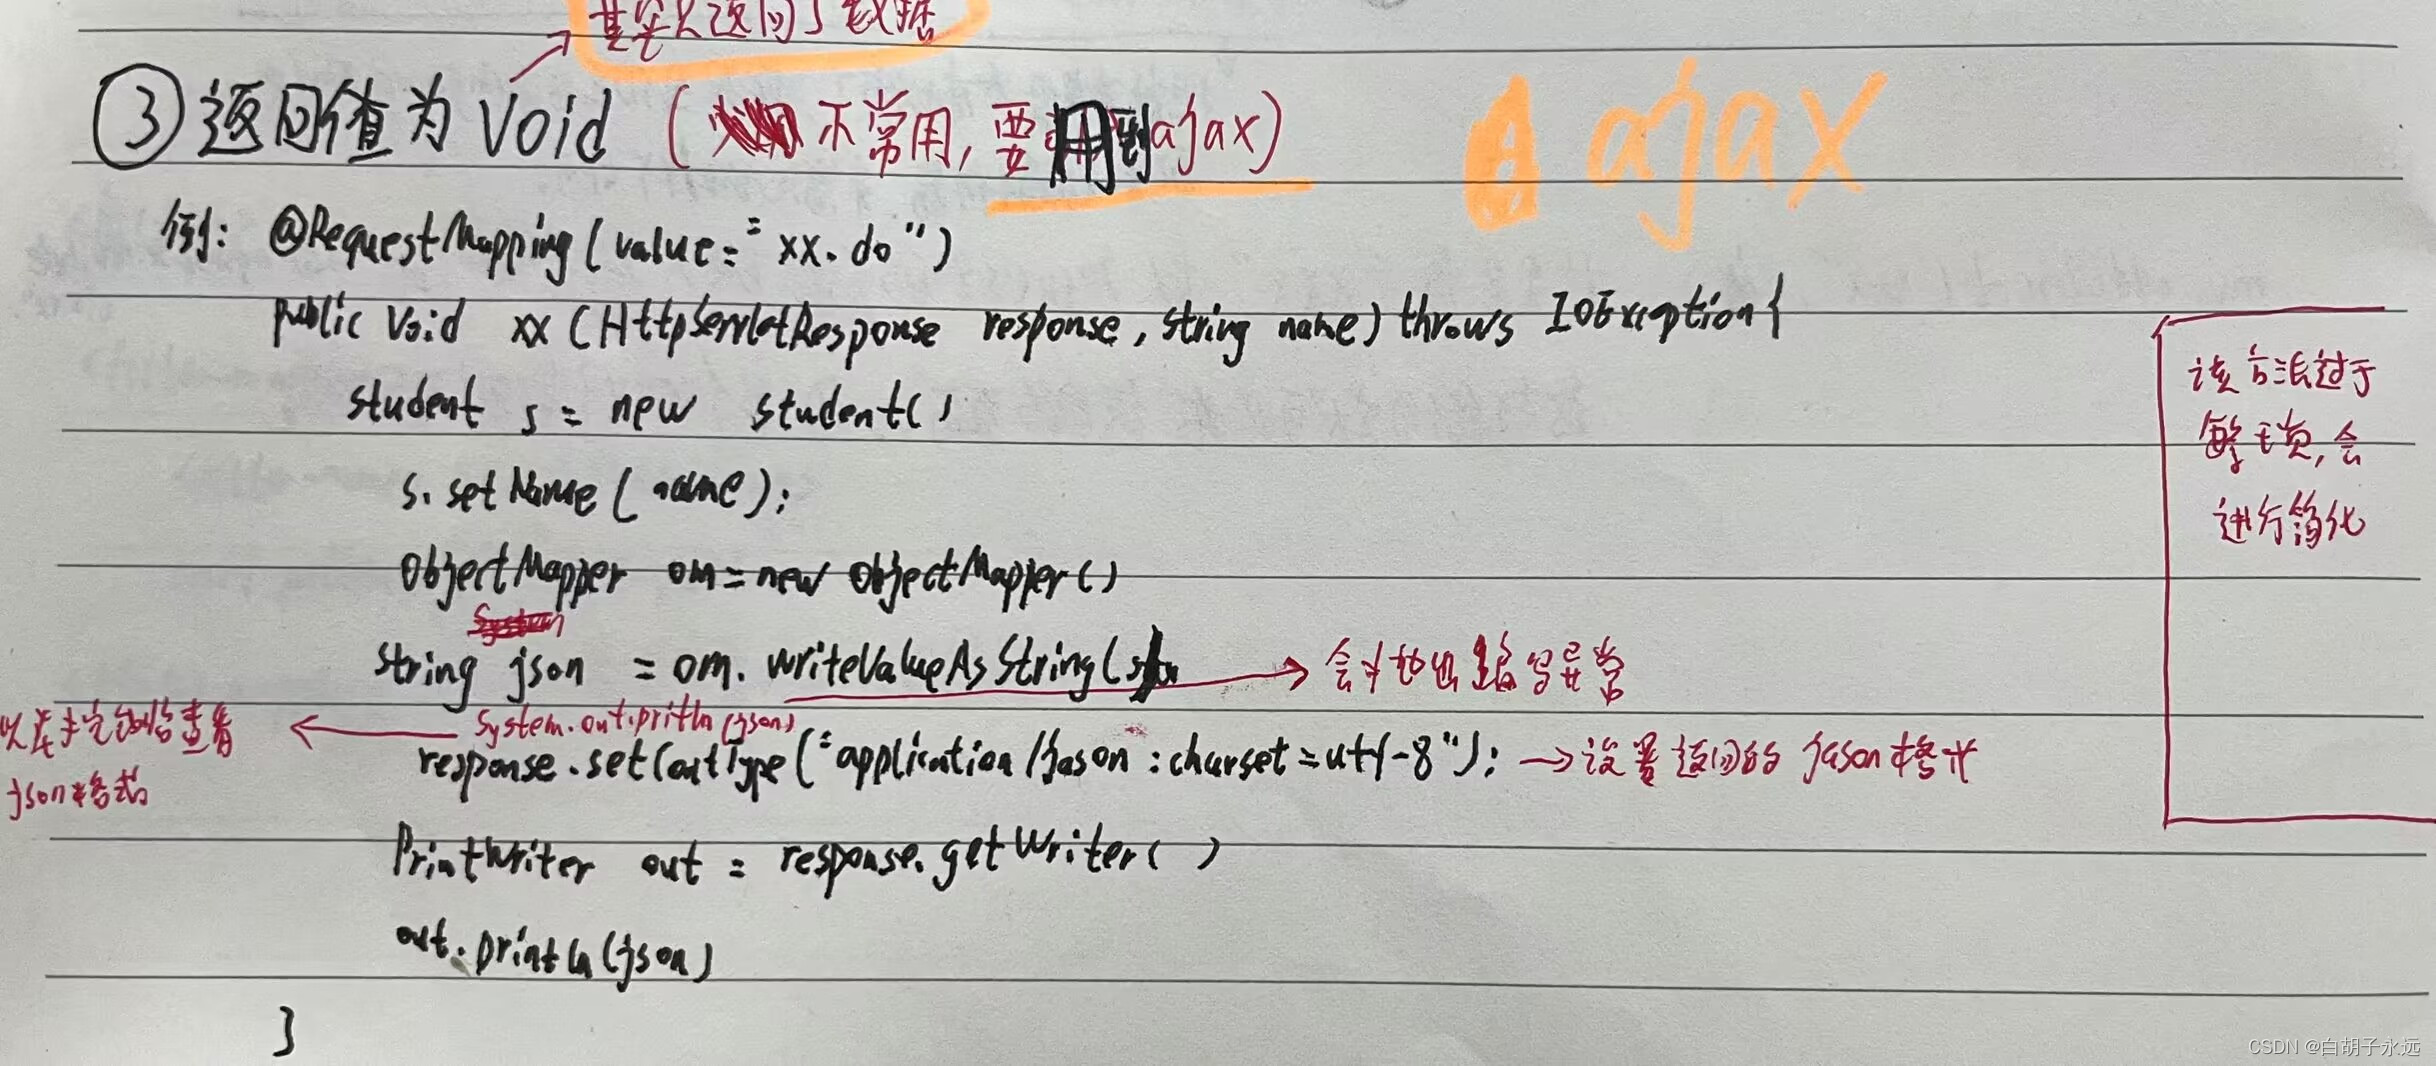 其实只返回了数据
③返回值为 Void ( 不常用, 要用到ajax)
ajax
例: @RequestMapping(value="xx.do")
public Void xx (HttpServletResponse response, string name) throws IOException{
student s = new student()
s.setName(name);
ObjectMapper om=new ObjectMapper()
string json = om.writeValueAsString(s
会抛出编写异常
System.out.pritln(json)
查看
json格式
response.setContType("application/jason:charset=utf-8"); →设置返回的jason格式
PrintWriter out = response.getWriter( )
out.println(json)
}
该方法过于
繁琐,会
进行简化
CSDN @白胡子永远